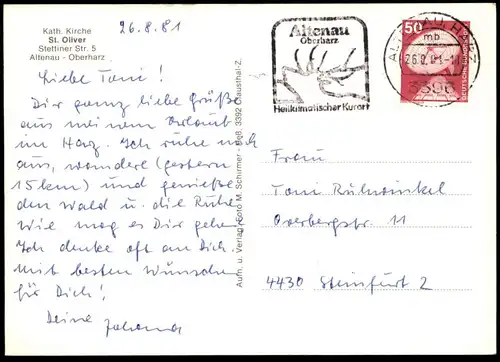 Kath. Kirche
St. Oliver
Stettiner Str. 5
Altenau - Oberharz
26.8.81
Liebe Toni!
Dir ganz liebe Grüße
aus meinem Urlaub
im Harz. Ich ruhe mich
aus, wandere (gestern
15 km) und genieße
den Wald u. die Ruhe
Wie mag es Dir gehen
Ich denke oft an Dich
Mit besten Wünschen
für Dich!
Deine Johanna
Aufn. u. Verlag Foto M. Schirmer 3392 Clausthal-Z.
Altenau
Oberharz
Heilklimatischer Kurort
ALTENAU, HARZ
mb
26.8.81-11
3396
50
DEUTSCHE BUNDESPOST
Frau
Toni
Overbergstr. 11
4430 Steinfurt 2